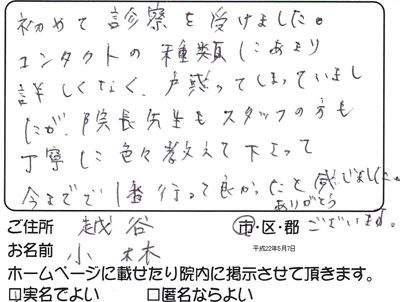 初めて診察を受けました。
コンタクトの種類にあまり
詳しくなく、戸惑ってしまっていまし
たが、院長先生もスタッフの方も
丁寧に色々教えて下さって
今までで1番行って良かったと感じました。
ありがとう
ございます。
ご住所 越谷 市・区・郡
お名前 小林 平成22年5月7日
ホームページに載せたり院内に掲示させて頂きます。
□実名でよい □匿名ならよい